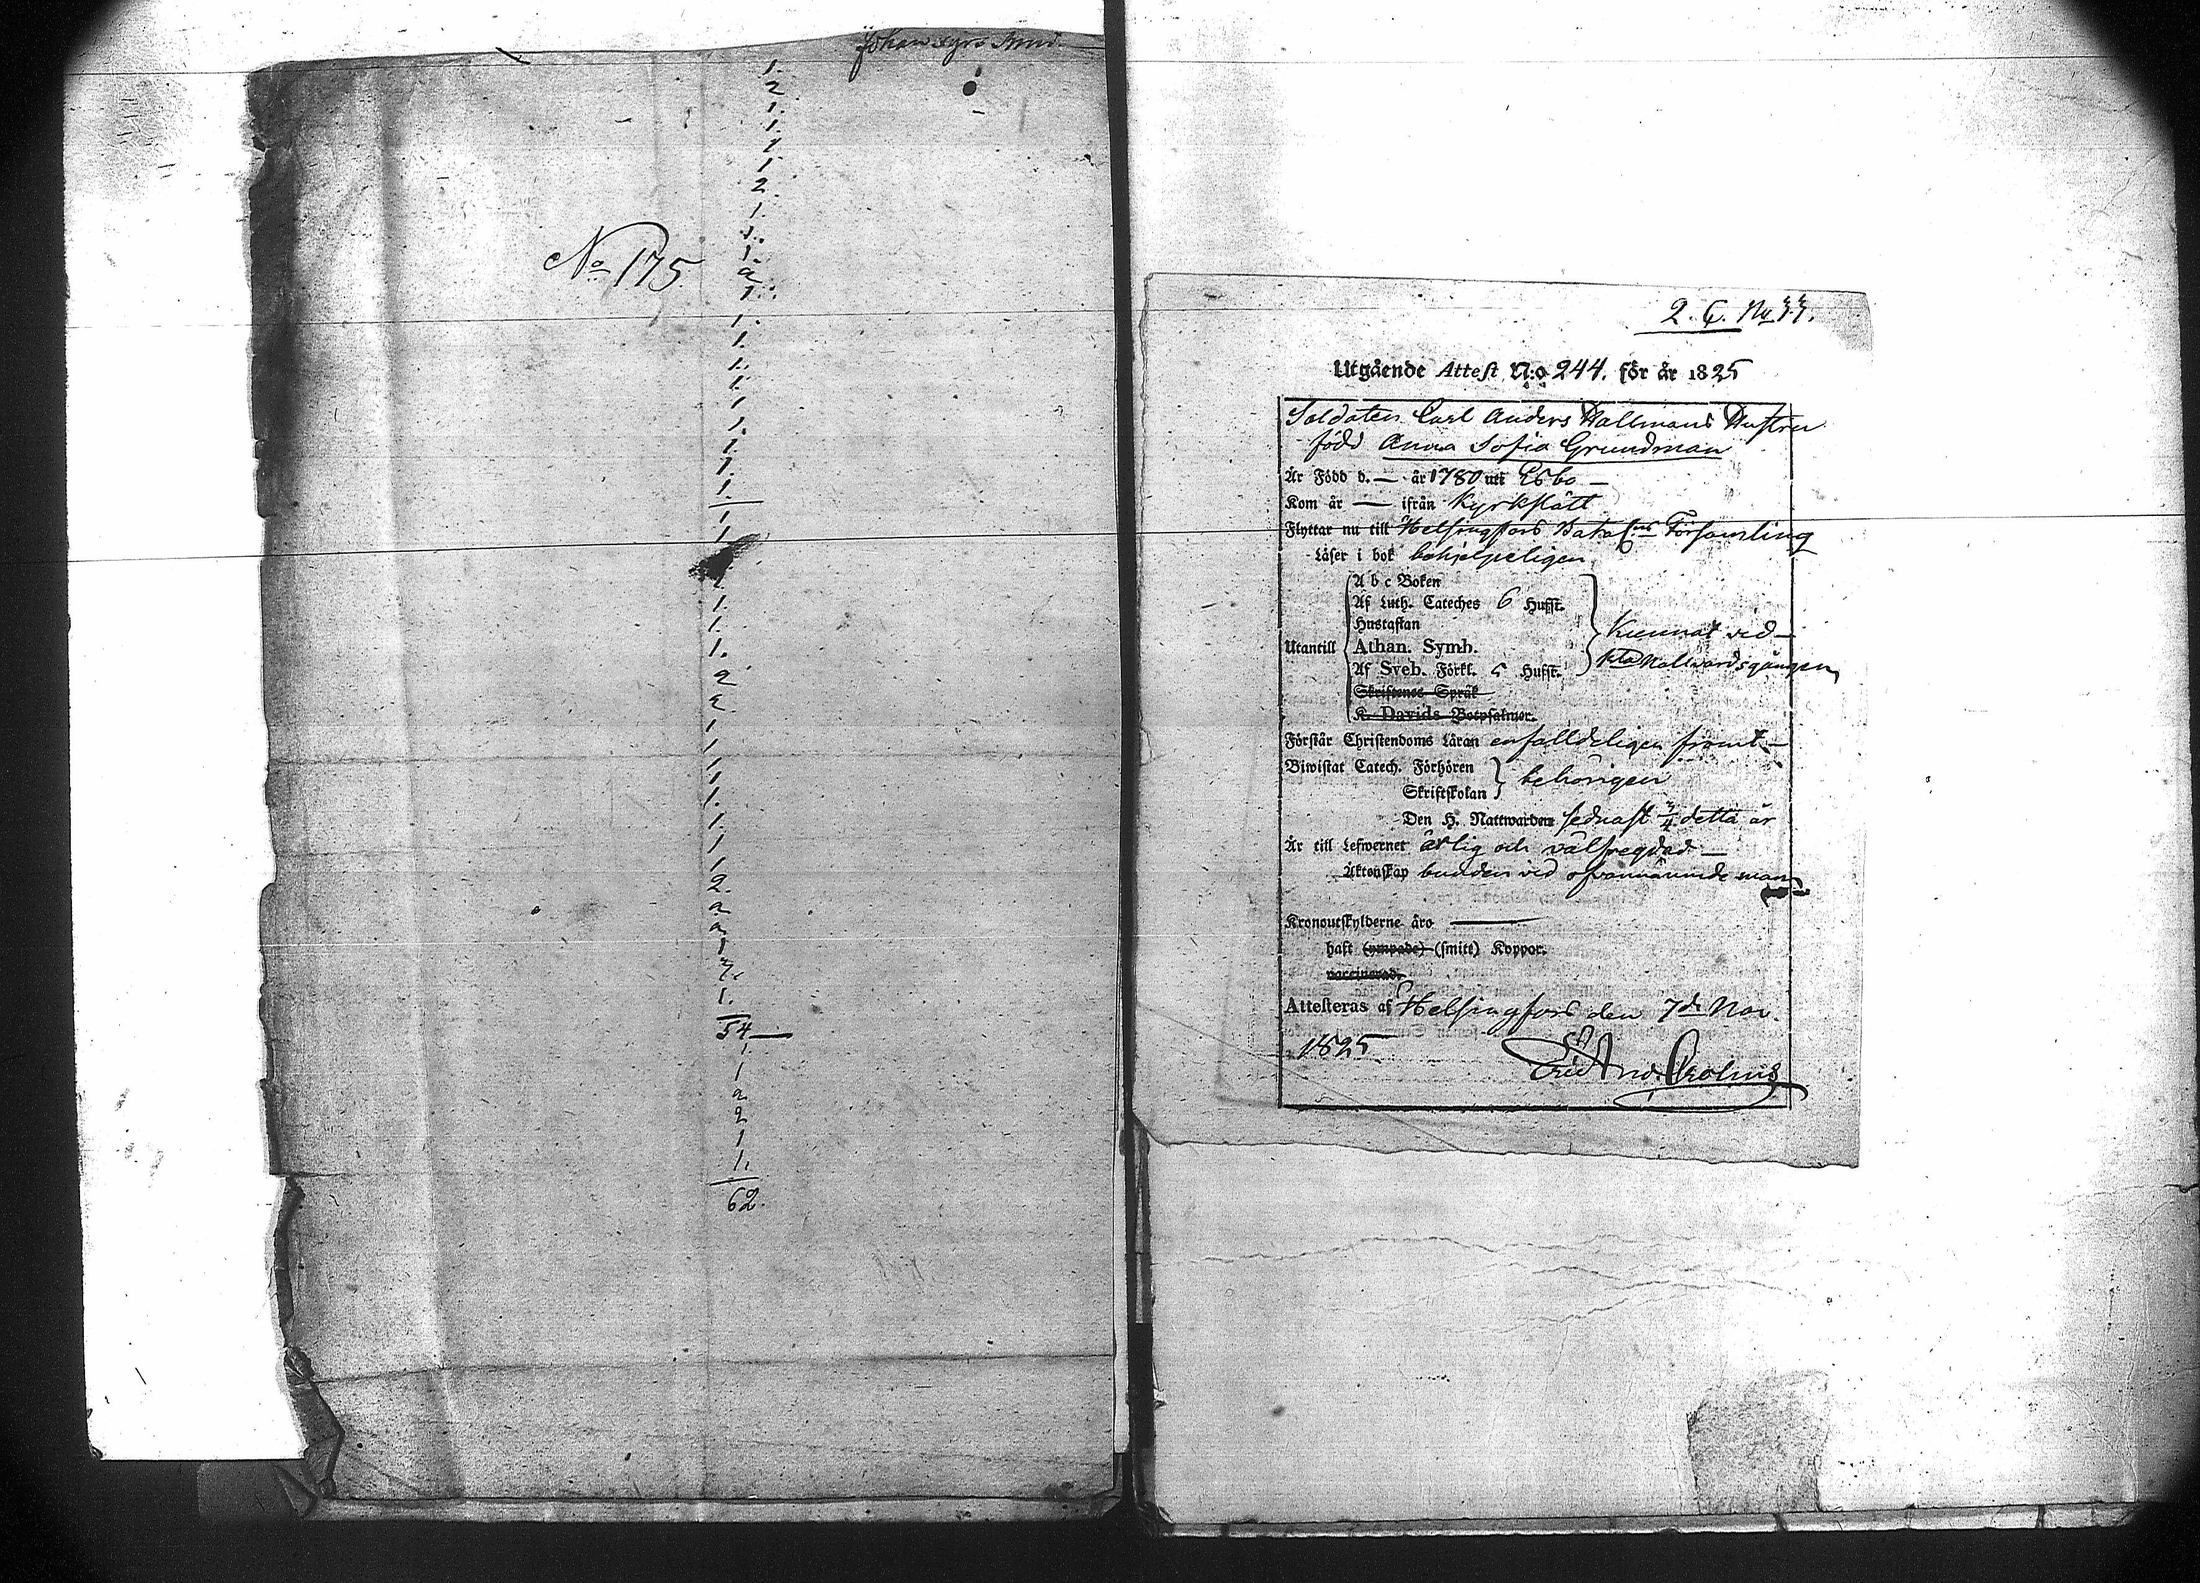 Johan
1.
2
1.
1.
1
1
2.
1.
1.
1.
2
1.
No 175
1.
1.
1.
1.
1
1.
1.
1.
1.
1
1
1.
1.
1.
2
2.
1
1
1
1.
1.
1
1
2.
2
2
1
1.
54
1.
1
2
2
1
1.
62.
2. C. No 33.
Utgående Attest N:o 244. för år 1825
Soldaten Carl Anders Hallmans Hustru
född Anna Sofia Grundman
Är Född d. — år 1780 uti Esbo —
Kom år — ifrån Kyrkslätt
Flyttar nu till Helsingfors Batal:ns Församling
Läser i bok behjelpeligen
A b c Boken
Af Luth. Cateches 6 Hufst.
Hustaflan
Utantill Athan. Symb.
Af Sveb. Förkl. 5 Hufst.
Kunnat vid —
Nattwardsgången
Skriftenes Språk
K. Davids Botpsalmer.
Förstår Christendoms Läran enfalldeligen främst —
Biwistat Catech. Förhören
Skriftskolan
behörigen
Den H. Nattwarden sednast 3/4 detta år
Är till Lefwernet ärlig och välfregdad —
Äktenskap bunden vid ofvannämnde man
Kronoutskylderne äro —
haft (ympade) (smitt) Koppor.
vaccinerad.
Attesteras af Helsingfors den 7de Nov.
1825